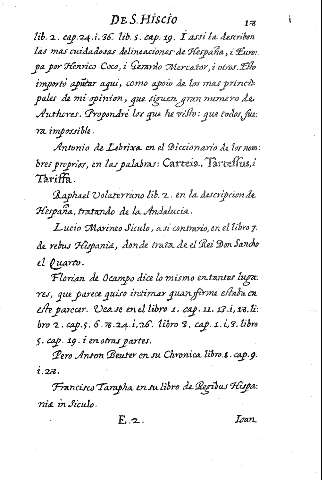 DE S. HISCIO
lib. 2. cap. 24. i. 26. lib. 5. cap. 19. I assi la describen
las mas cuidadosas delineaciones de Hespaña, i Euro-
pa por Henrico Coco, i Gerardo Mercator, i otros. Esto
importó apũtar aqui, como apoio de los mas princi-
pales de mi opinion, que siguen gran numero de
Authores. Propondré los que he visto: que todos, fue-
ra impossible.
Antonio de Lebrixa en el Diccionario de los nom-
bres proprios, en las palabras: Carteia, Tartessus, i
Tariffa.
Raphael Volaterrano lib. 2. en la descripcion de
Hespaña, tratando de la Andalucia.
Lucio Marineo Siculo, a si contrario, en el libro 7.
de rebus Hispaniæ, donde trata de el Rei Don Sancho
el Quarto.
Florian de Ocampo dice lo mismo en tantos luga-
res, que parece quiso intimar quan firme estaba en
este parecer. Vea se en el libro 1. cap. 11. 17. i, 18. li-
bro 2. cap. 5. 6. 18. 24. i, 26. libro 3. cap. 1. i, 8. libro
5. cap. 19. i en otras partes.
Pero Anton Beuter en su Chronica libro. 1. cap. 9.
i. 28.
Francisco Tarapha en su libro de Regibus Hispa-
niæ in Siculo.
E. 2. Ioan